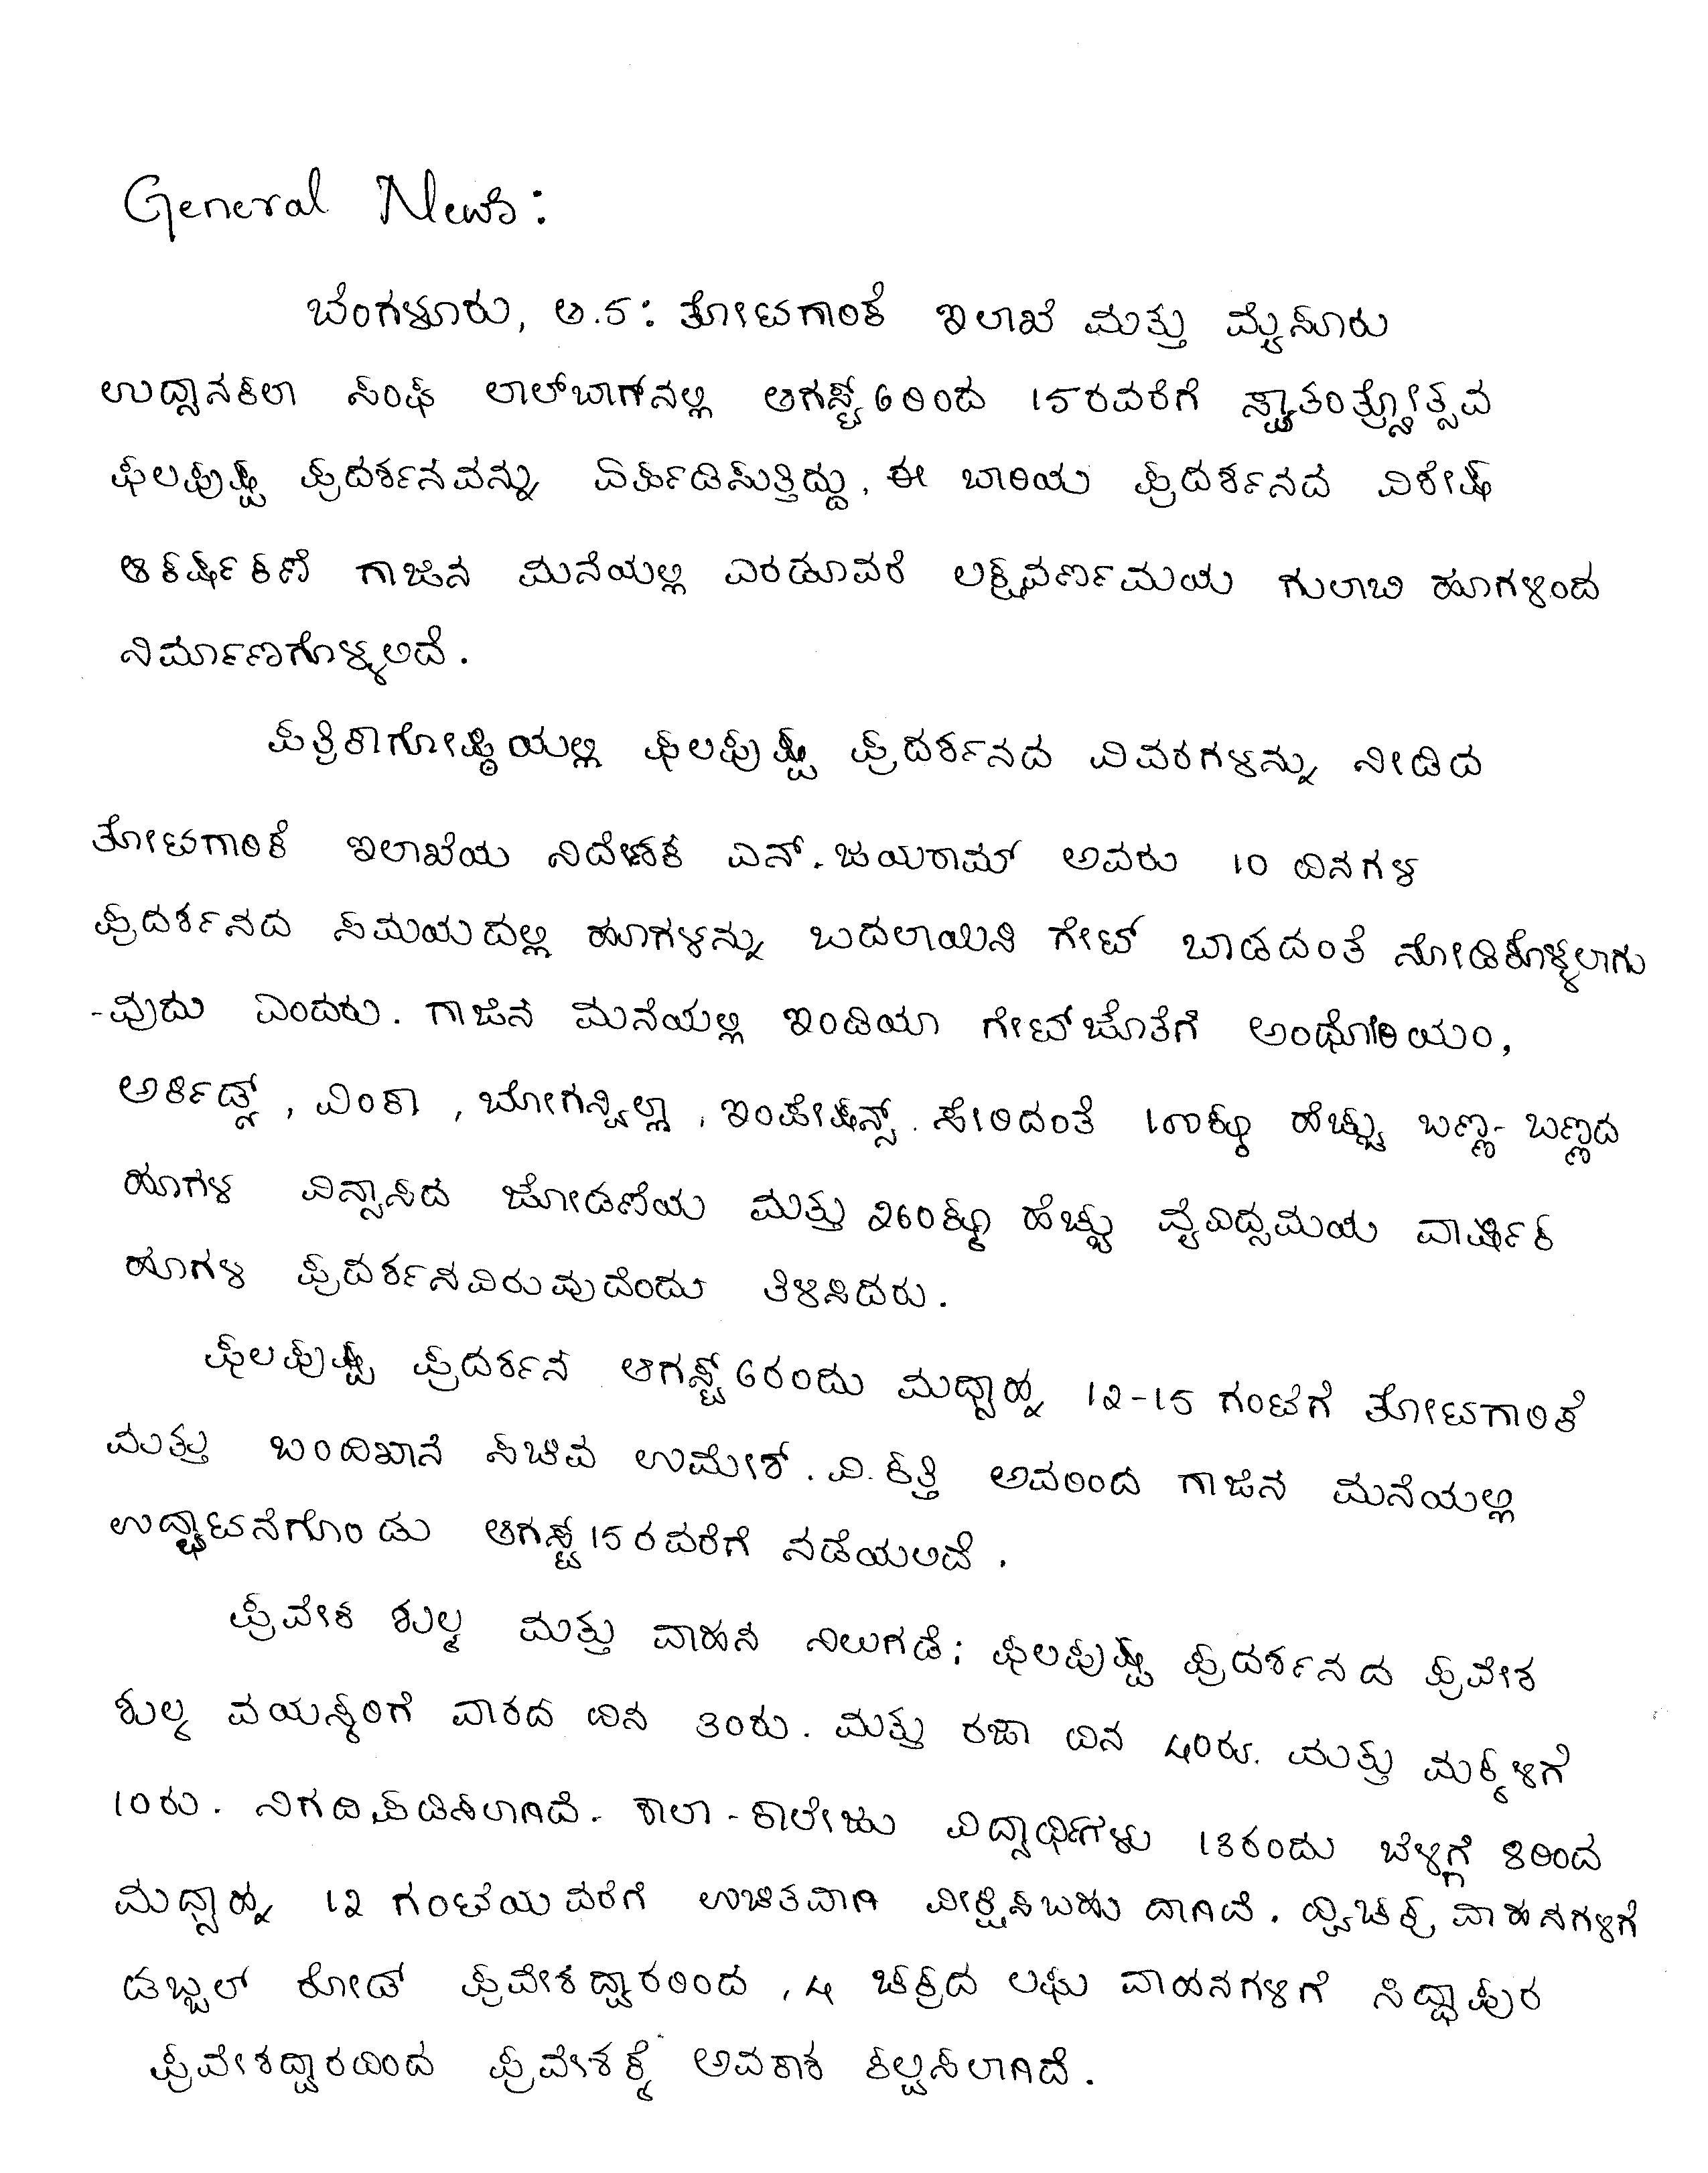 General News:
ಬೆಂಗಳೂರು, ಆ.5: ತೋಟಗಾರಿಕೆ ಇಲಾಖೆ ಮತ್ತು ಮೈಸೂರು
ಉದ್ಯಾನಕಲಾ ಸಂಘ ಲಾಲ್‌ಬಾಗ್‌ನಲ್ಲಿ ಆಗಸ್ಟ್ 6ರಿಂದ 15ರವರೆಗೆ ಸ್ವಾತಂತ್ರ್ಯೋತ್ಸವ
ಫಲಪುಷ್ಪ ಪ್ರದರ್ಶನವನ್ನು ಏರ್ಪಡಿಸುತ್ತಿದ್ದು, ಈ ಬಾರಿಯ ಪ್ರದರ್ಶನದ ವಿಶೇಷ
ಆಕರ್ಷಕಣೆ ಗಾಜಿನ ಮನೆಯಲ್ಲಿ ಎರಡೂವರೆ ಲಕ್ಷ ವರ್ಣಮಯ ಗುಲಾಬಿ ಹೂಗಳಿಂದ
ನಿರ್ಮಾಣಗೊಳ್ಳಲಿದೆ.
ಪತ್ರಿಕಾಗೋಷ್ಠಿಯಲ್ಲಿ ಫಲಪುಷ್ಪ ಪ್ರದರ್ಶನದ ವಿವರಗಳನ್ನು ನೀಡಿದ
ತೋಟಗಾರಿಕೆ ಇಲಾಖೆಯ ನಿರ್ದೇಶಕ ಎನ್. ಜಯರಾಮ್ ಅವರು 10 ದಿನಗಳ
ಪ್ರದರ್ಶನದ ಸಮಯದಲ್ಲಿ ಹೂಗಳನ್ನು ಬದಲಾಯಿಸಿ ಗೇಟ್ ಬಾಡದಂತೆ ನೋಡಿಕೊಳ್ಳಲಾಗು
-ವುದು ಎಂದರು. ಗಾಜಿನ ಮನೆಯಲ್ಲಿ ಇಂಡಿಯಾ ಗೇಟ್‌ಜೊತೆಗೆ ಅಂಥೋರಿಯಂ,
ಆರ್ಕಿಡ್ಸ್, ವಿಂಕಾ, ಬೋಗನ್ವಿಲ್ಲಾ, ಇಂಪೇಷನ್ಸ್. ಸೇರಿದಂತೆ 100ಕ್ಕೂ ಹೆಚ್ಚು ಬಣ್ಣ-ಬಣ್ಣದ
ಹೂಗಳ ವಿನ್ಯಾಸದ ಜೋಡಣೆಯ ಮತ್ತು 260ಕ್ಕೂ ಹೆಚ್ಚು ವೈವಿಧ್ಯಮಯ ವಾರ್ಷಿಕ
ಹೂಗಳ ಪ್ರದರ್ಶನವಿರುವುದೆಂದು ತಿಳಿಸಿದರು.
ಫಲಪುಷ್ಪ ಪ್ರದರ್ಶನ ಆಗಸ್ಟ್ 6ರಂದು ಮಧ್ಯಾಹ್ನ 12-15 ಗಂಟೆಗೆ ತೋಟಗಾರಿಕೆ
ಮತ್ತು ಬಂದಿಖಾನೆ ಸಚಿವ ಉಮೇಶ್. ವಿ. ಕತ್ತಿ ಅವರಿಂದ ಗಾಜಿನ ಮನೆಯಲ್ಲಿ
ಉದ್ಘಾಟನೆಗೊಂಡು ಆಗಸ್ಟ್ 15ರವರೆಗೆ ನಡೆಯಲಿದೆ.
ಪ್ರವೇಶ ಶುಲ್ಕ ಮತ್ತು ವಾಹನ ನಿಲುಗಡೆ; ಫಲಪುಷ್ಪ ಪ್ರದರ್ಶನದ ಪ್ರವೇಶ
ಶುಲ್ಕ ವಯಸ್ಕರಿಗೆ ವಾರದ ದಿನ 30ರು. ಮತ್ತು ರಜಾ ದಿನ 40ರು. ಮತ್ತು ಮಕ್ಕಳಿಗೆ
10ರು. ನಿಗದಿಪಡಿಸಲಾಗಿದೆ. ಶಾಲಾ-ಕಾಲೇಜು ವಿದ್ಯಾರ್ಥಿಗಳು 13ರಂದು ಬೆಳಗ್ಗೆ 8ರಿಂದ
ಮಧ್ಯಾಹ್ನ 12 ಗಂಟೆಯವರೆಗೆ ಉಚಿತವಾಗಿ ವೀಕ್ಷಿಸಬಹುದಾಗಿದೆ. ದ್ವಿಚಕ್ರ ವಾಹನಗಳಿಗೆ
ಡಬ್ಬಲ್ ರೋಡ್ ಪ್ರವೇಶದ್ವಾರದಿಂದ, 4 ಚಕ್ರದ ಲಘು ವಾಹನಗಳಿಗೆ ಸಿದ್ಧಾಪುರ
ಪ್ರವೇಶದ್ವಾರದಿಂದ ಪ್ರವೇಶಕ್ಕೆ ಅವಕಾಶ ಕಲ್ಪಿಸಲಾಗಿದೆ.